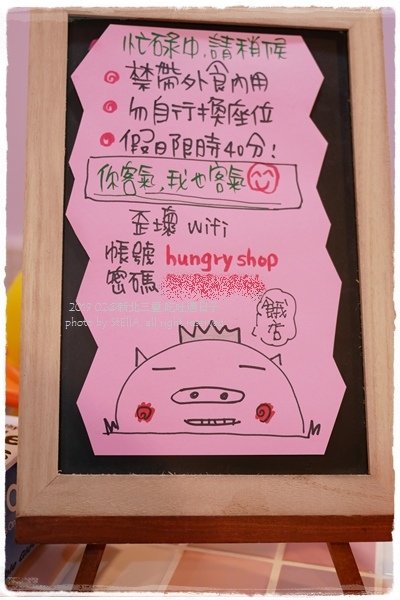 忙碌中,請稍候
禁帶外食內用
勿自行換座位
假日限時40分!
你客氣,我也客氣
歪壞 wifi
帳號 hungry shop
密碼
餓店
photo by STELLA, all rights